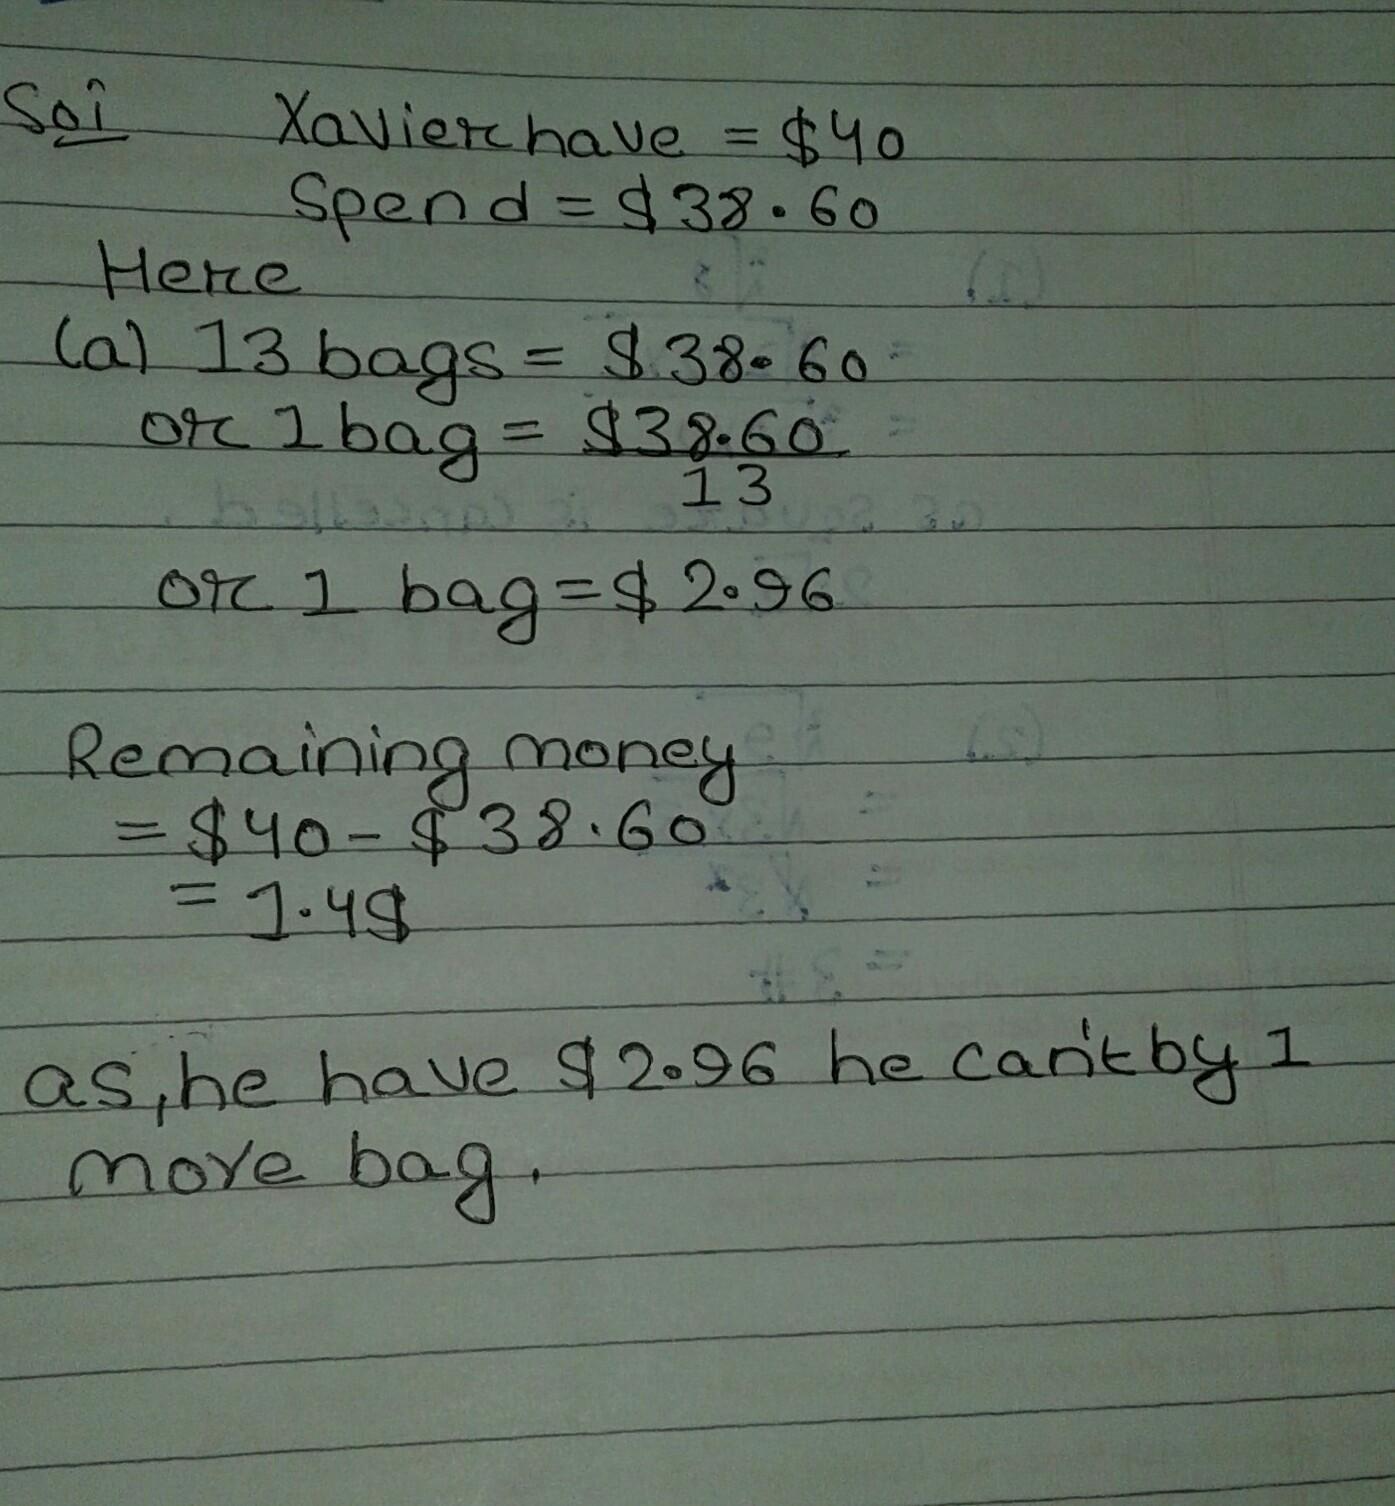 Soi Xavier have = $40
Spend = $38.60
Here
(a) 13 bags = $38.60
or 1 bag = $38.60
13
or 1 bag = $2.96
Remaining money
= $40 - $38.60
= 1.4$
as, he have $2.96 he can't by 1
more bag.